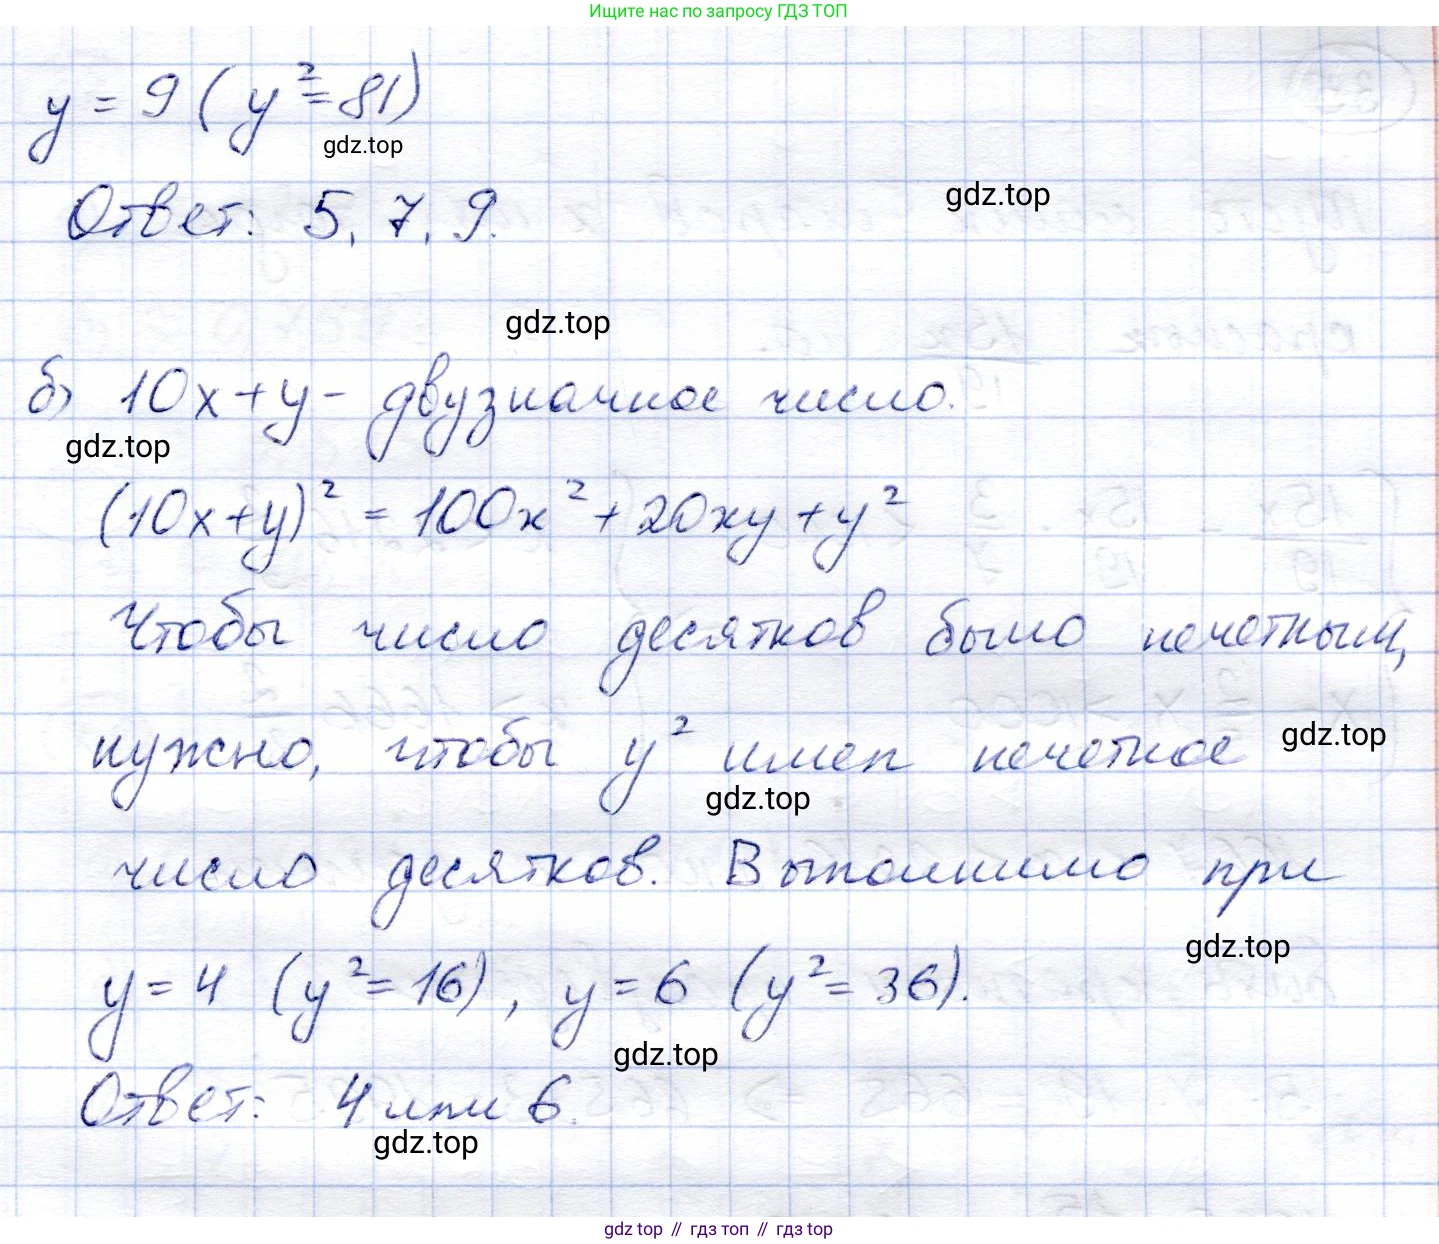 Ищите нас по запросу ГДЗ ТОП
y = 9 (y² = 81)
gdz.top
Ответ: 5, 7, 9.
gdz.top
gdz.top
б) 10x + y - двузначное число.
gdz.top
(10x + y)² = 100x² + 20xy + y²
Чтобы число десятков было нечетным,
нужно, чтобы y² имел нечетное
gdz.top
gdz.top
число десятков. Выполнимо при
gdz.top
y = 4 (y² = 16), y = 6 (y² = 36).
gdz.top
Ответ: 4 или 6.
gdz.top
gdz top // гдз топ // гдз top